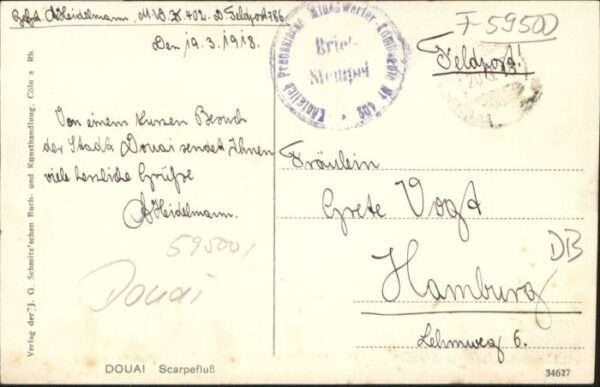 A Heidelmann, M.W.K. 402. D. Feldpost 786
Den 19.3.1918.
Von einem kurzen Besuch
der Stadt Douai sendet Ihnen
viele herzliche Grüße
A Heidelmann.
595001
Douai
DOUAI Scarpefluß
Verlag der J. G. Schmitz'schen Buch- und Kunsthandlung, Cöln a Rh.
Königlich Preussische Minenwerfer-Kompagnie Nr 402
Brief-
Stempel
F-59500
Feldpost!
Fräulein
Grete Vogt
DB
Hamburg
Lehmweg 6.
34627